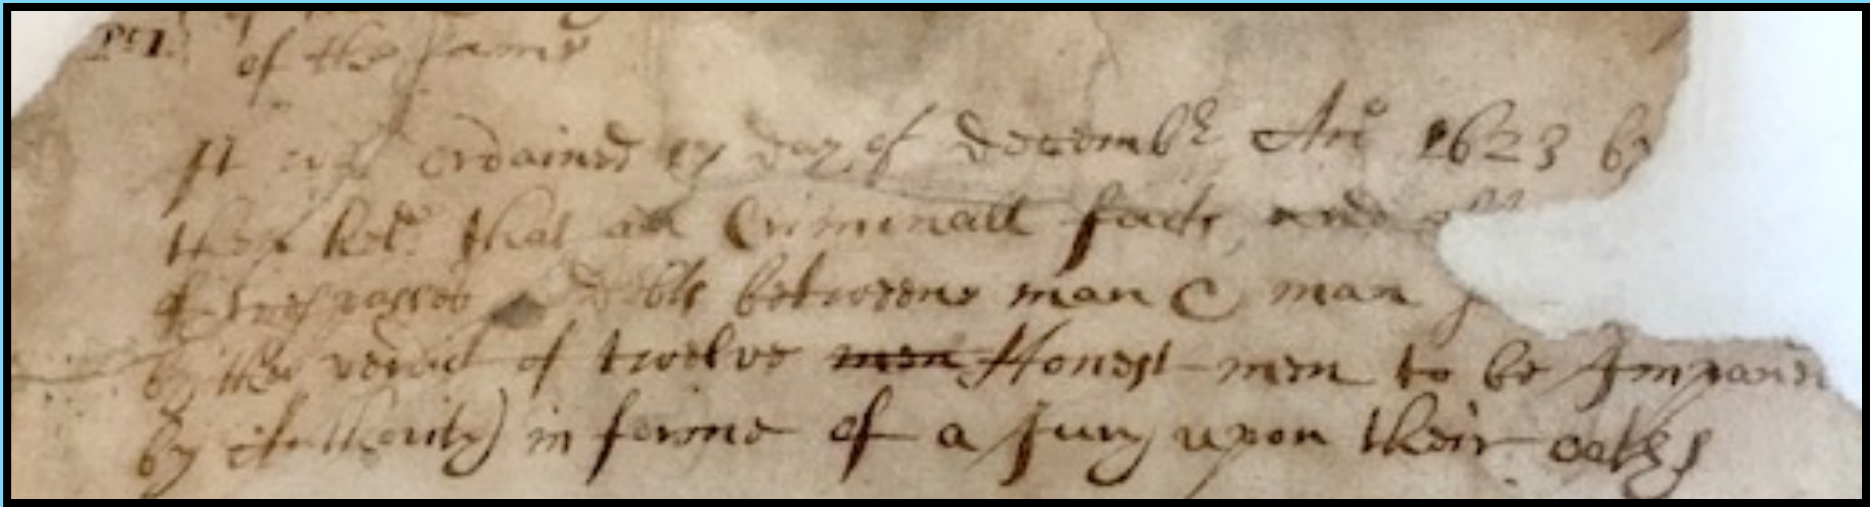 of the same
It was ordained 17 day of decembr Ano 1623 by
the Court then held that all Criminall facts, and all
of trespasses debts betweene man & man
by the verdict of twelve men Honest men to be Impane
by Authority) in forme of a Jury upon their oaths